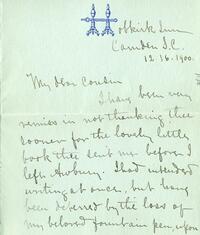 Hobkirk Inn
Camden S.C.
12.16.1900.
My dear Cousin
I have been very
remiss in not thanking thee
sooner for the lovely little
book thee sent me before I
left Awbury. I had intended
writing at once, but have
been deterred by the loss of
my beloved fountain pen, upon